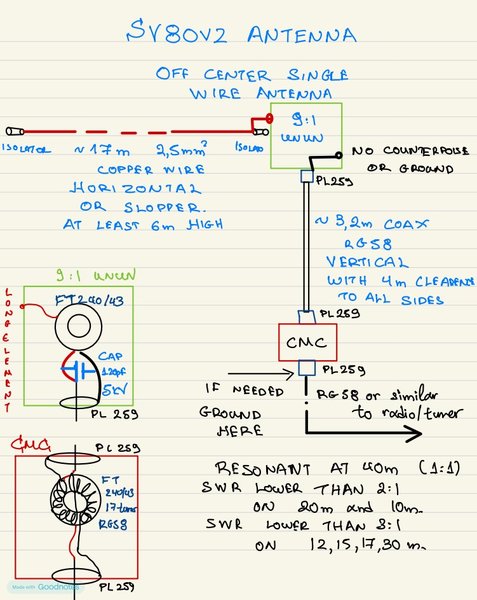 SV8OV2 ANTENNA
OFF CENTER SINGLE
WIRE ANTENNA
9:1
UNUN
ISOLATOR
~17m 2,5mm²
ISOLATO
COPPER WIRE
HORIZONTAL
OR SLOPPER.
AT LEAST 6m HIGH
NO COUNTERPOISE
OR GROUND
PL259
~3,2m COAX
RG58
VERTICAL
WITH 4m CLEARENCE
TO ALL SIDES
PL259
CMC
PL259
IF NEEDED
GROUND
HERE
RG58 or similar
to radio/tuner
9:1 UNUN
LONG ELEMENT
FT240/43
CAP
120pF
5KV
PL 259
CMC
PL 259
FT
240/43
17-turns
RG58
PL 259
RESONANT AT 40m (1:1)
SWR LOWER THAN 2:1
ON 20m and 10m.
SWR LOWER THAN 3:1
ON 12, 15, 17, 30 m.
Made with Goodnotes